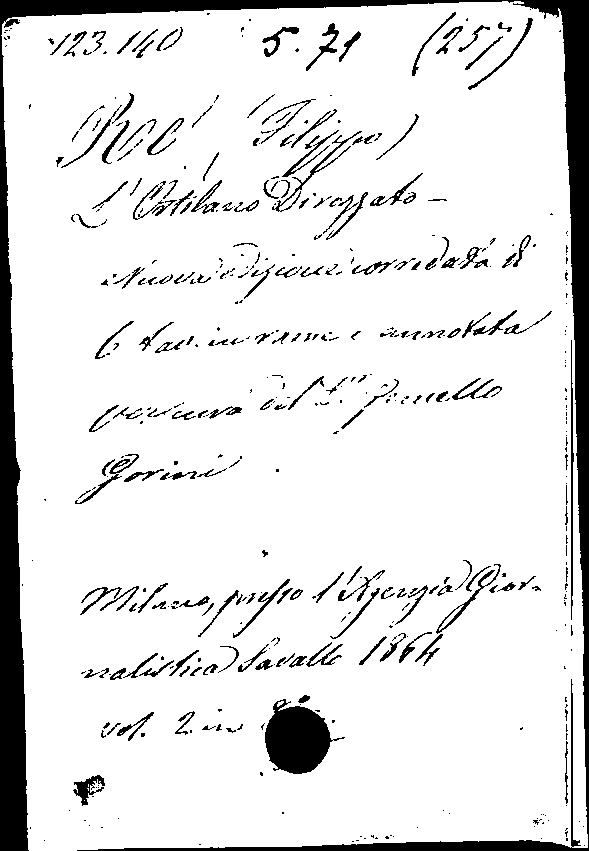 123.140 5.71 (257)
Re (Filippo)
L'Ortolano Dirozzato -
Nuova edizione corredata di
6 tav. in rame e annotata
per cura del D.r Gemello
Gorini
Milano, presso l'Agenzia Gior-
nalistica Savallo 1864
vol. 2 in 8°